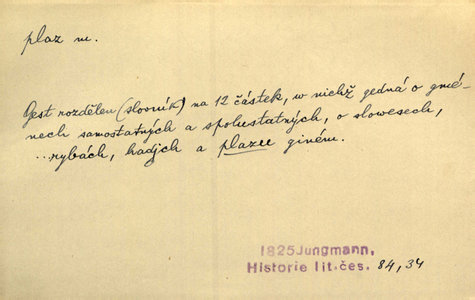 plaz m.
Gest rozdělen (slovník) na 12 částek, w nichž gedná o gmé-
nech samostatných a spolustatných, o slowesech,
...rybách, hadjch a plazu giném.
1825 Jungmann,
Historie lit. čes. 84, 34